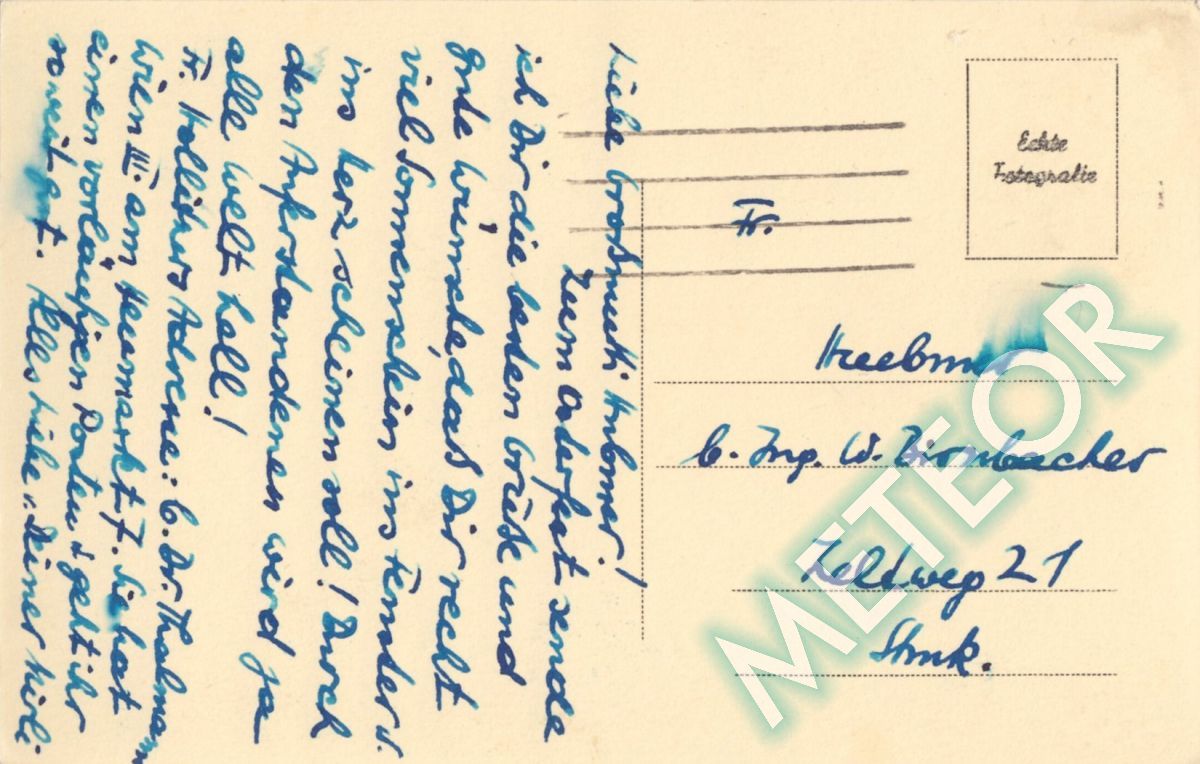 Liebe Großmutti Hubmer!
Zum Osterfest sende
ich Dir die besten Grüße und
Gute Wünsche, das Dir recht
viel Sonnenschein ins Fenster u.
ins Herz scheinen soll! Durch
den Auferstandenen wird ja
alle Welt hell!
Fr. Holliters Adresse: b. Dr. Thalmann
Wien III. am Heumarkt 7. Sie hat
einen vorläufigen Posten u geht ihr
soweit gut. Alles Liebe v. Deiner
Echte
Fotografie
Fr.
b. Ing. W. Dirnbacher
Zeltweg 21
Stmk.
METEOR